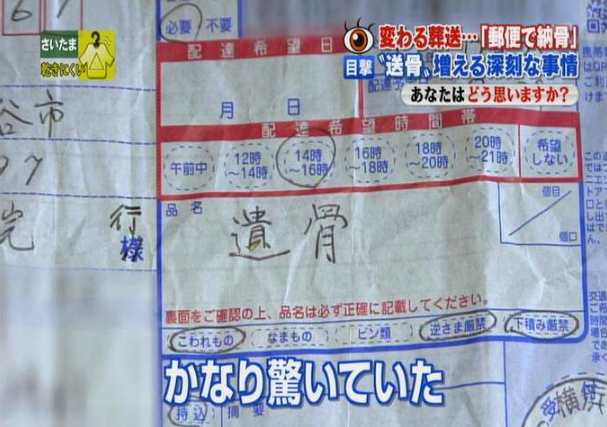 さいたま
乾きにくい
変わる葬送…「郵便で納骨」
目撃 “送骨”増える深刻な事情
あなたは どう思いますか?
必要 不要
配達希望日
月 日
配達希望時間帯
午前中
12時～14時
14時～16時
16時～18時
18時～20時
20時～21時
希望しない
谷市
行
様
品名
遺骨
個目
個口
裏面をご確認の上、品名は必ず正確に記載してください。
こわれもの なまもの ビン類 逆さま厳禁 下積み厳禁
かなり驚いていた
持込 摘要